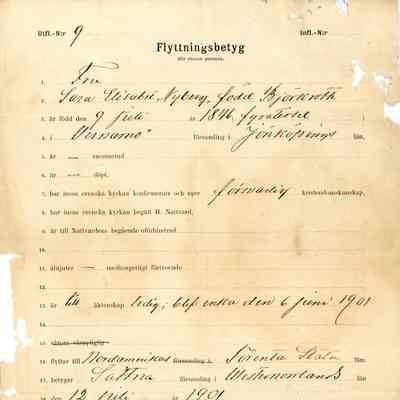 Utfl.-N:r 9 Infl.-N:r
Flyttningsbetyg
1. Fru
2. Sara Elisabet Nyberg, född Björkroth
3. är född den 9 juli år 1846 fyratiosex
4. i Vernamo församling i Jönköpings län,
5. är — vaccinerad
6. är — döpt,
7. har inom svenska kyrkan konfirmerats och eger försvarlig kristendomskunskap,
8. har inom svenska kyrkan begått H. Nattvard,
9. är till Nattvardens begående oförhindrad
10.
11. åtnjuter — medborgerligt förtroende
12.
13. är till äktenskap ledig; blef enka den 6 juni 1901
14.
15.
16. flyttar till Nordamerikas församling i Förenta Stater län;
17. betygar Sättna församling i Westernorrlands län
18. den 12 juli 1901